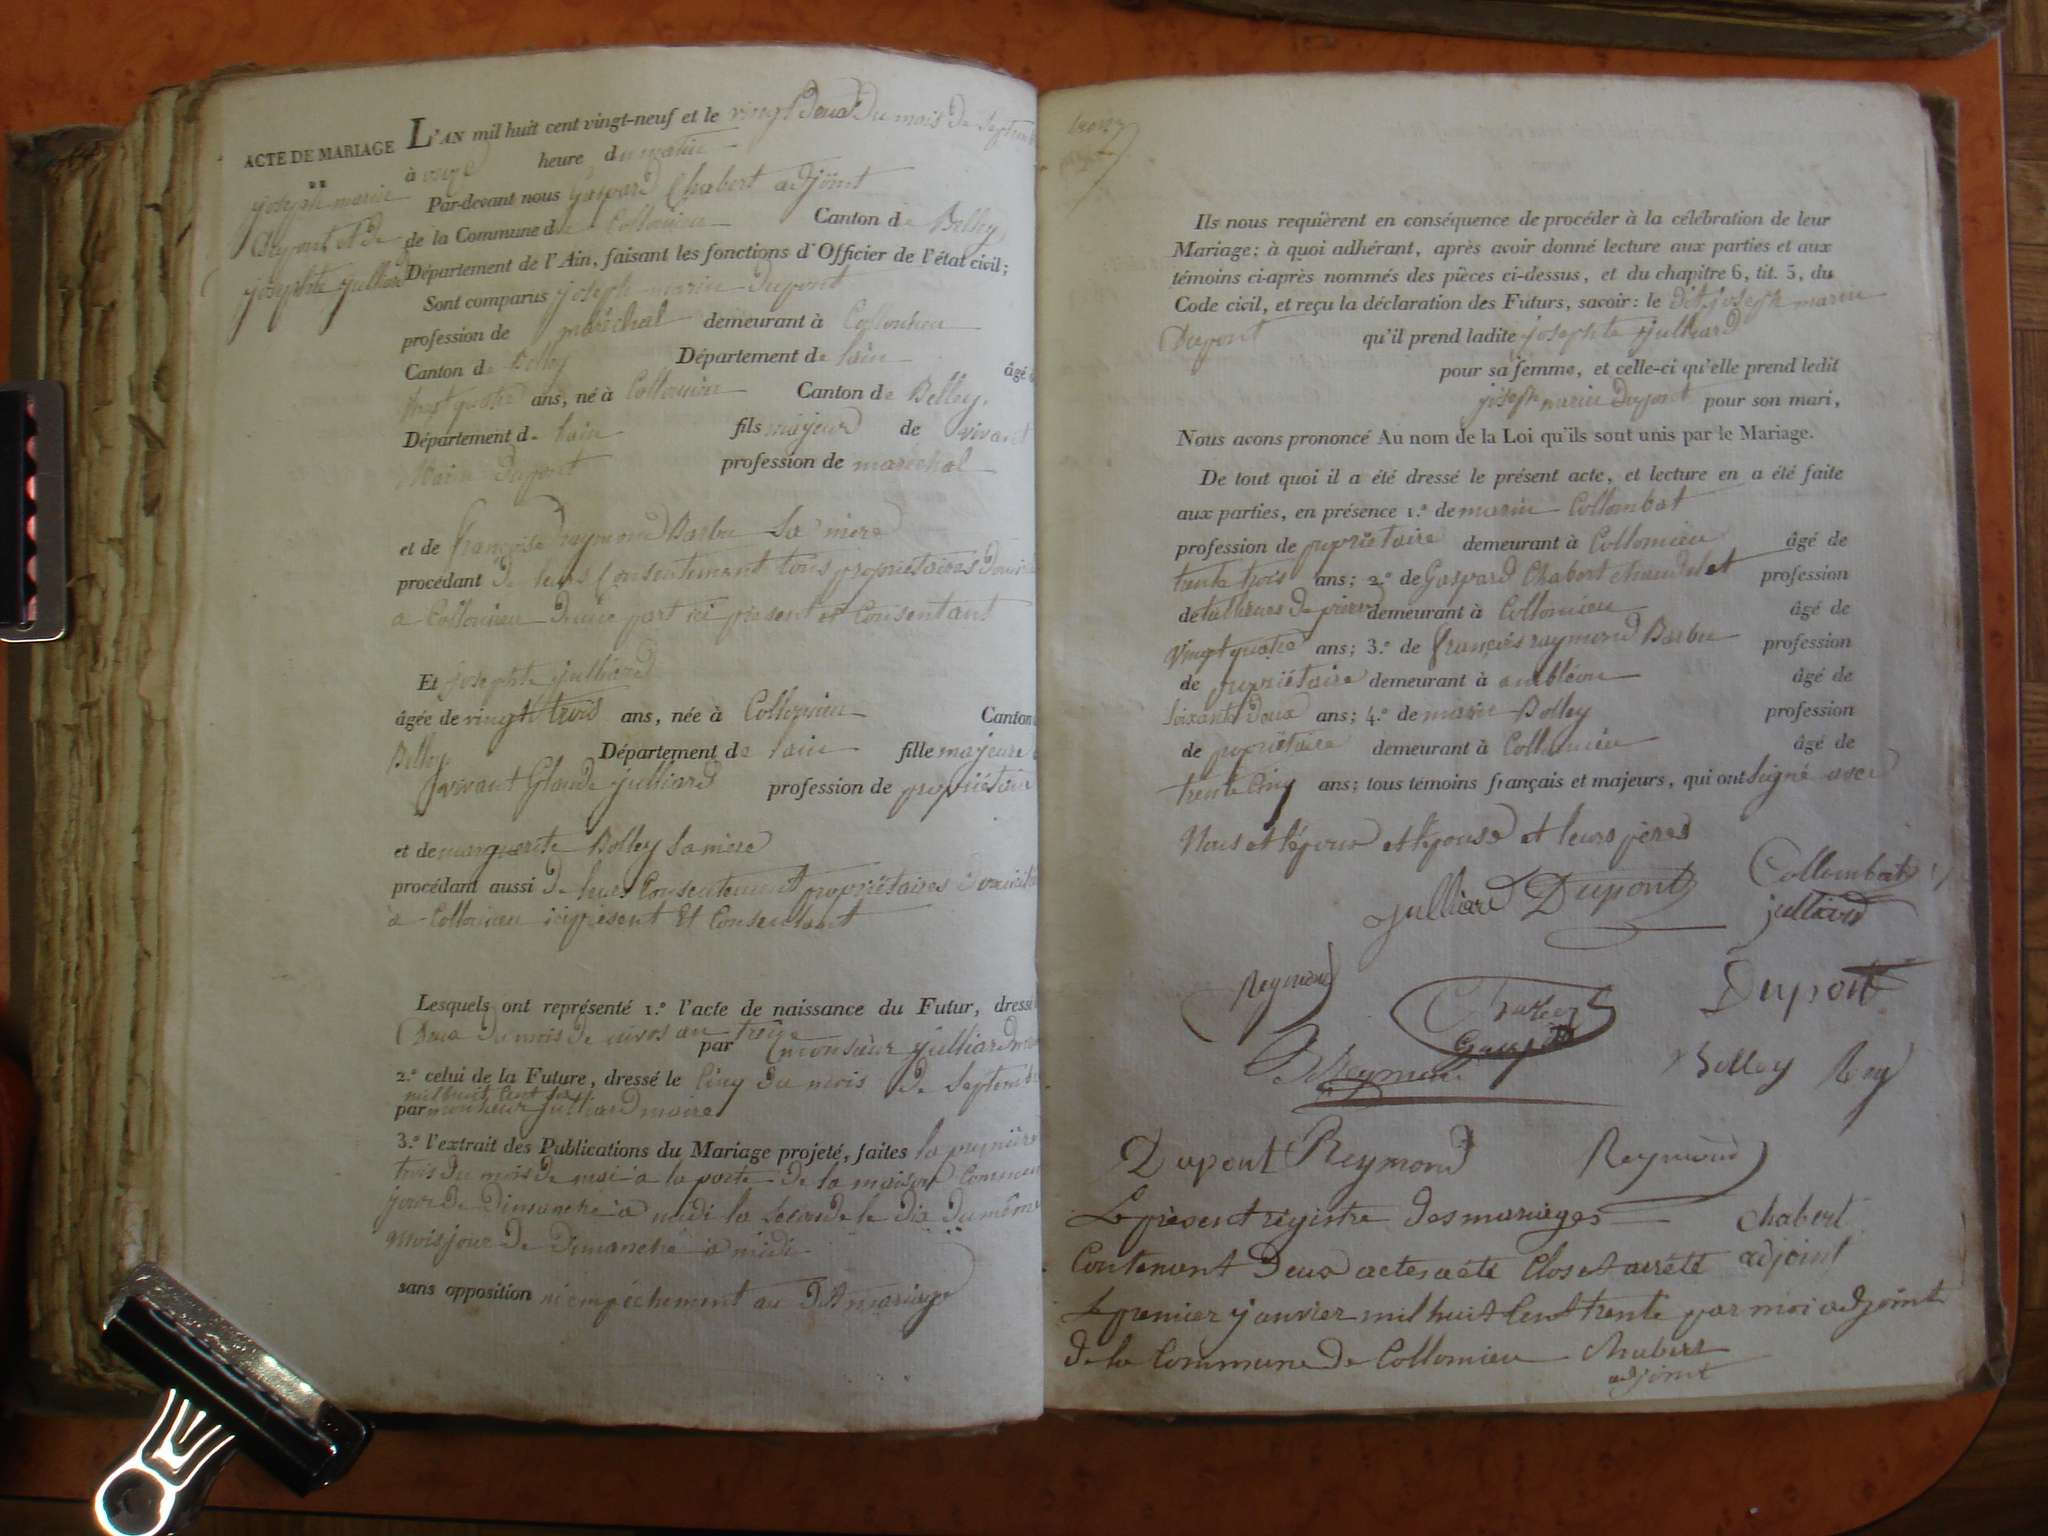 ACTE DE MARIAGE
joseph marin
dupont et de
josephte julliard
L'AN mil huit cent vingt-neuf et le vingt deux du mois de septem
à onze heure du matin
Par-devant nous Gaspard Chabert adjoint
de la Commune de Collomieu Canton de Belley
Département de l'Ain, faisant les fonctions d'Officier de l'état civil;
Sont comparus joseph marin Dupont
profession de maréchal demeurant à Collomieu
Canton de Belley Département de lain âgé
vingt quatre ans, né à Collomieu Canton de Belley
Département de lain fils majeur de vivant
Marin Dupont profession de maréchal
et de françoise raymond Barbu Sa mere
procédant de leurs Consentement tous propriétaires
a Collomieu d'une part ici présent et Consentant
Et josephte julliard
âgée de vingt trois ans, née à Collomieu Canton
Belley Département de lain fille majeure
vivant Glaude julliard profession de propriétaire
et de marguerite Bolley sa mere
procédant aussi de leurs Consentement propriétaires
a Collomieu ici present Et Consentant
Lesquels ont représenté 1.º l'acte de naissance du Futur, dressé
Deux du mois de nivos an treize
par monsieur julliard
2.º celui de la Future, dressé le Cinq du mois de Septembre
mil huit Cent six
par monsieur julliard maire
3.º l'extrait des Publications du Mariage projeté, faites la première
trois du mois de mai a la porte de la maison Commune
jour de Dimanche a midi la Seconde le dix du même
mois jour de Dimanche a midi
sans opposition ni empéchement au Dit mariage
Ils nous requièrent en conséquence de procéder à la célébration de leur
Mariage; à quoi adhérant, après avoir donné lecture aux parties et aux
témoins ci-après nommés des pièces ci-dessus, et du chapitre 6, tit. 5, du
Code civil, et reçu la déclaration des Futurs, savoir: le dit joseph marin
Dupont qu'il prend ladite josephte julliard
pour sa femme, et celle-ci qu'elle prend ledit
joseph marin Dupont pour son mari,
Nous avons prononcé Au nom de la Loi qu'ils sont unis par le Mariage.
De tout quoi il a été dressé le présent acte, et lecture en a été faite
aux parties, en présence 1.º de marin Collombat
profession de propriétaire demeurant à Collomieu âgé de
trente trois ans; 2.º de Gaspard Chabert profession
de tallieur de pierre demeurant à Collomieu âgé de
vingt quatre ans; 3.º de françois raymond Barbu profession
de propriétaire demeurant à ambléon âgé de
soixante deux ans; 4.º de marin Bolley profession
de propriétaire demeurant à Collomieu âgé de
trente Cinq ans; tous témoins français et majeurs, qui ont signé avec
Nous et lépoux et lépouse et leurs pères
Julliard Dupont Collombat
julliard
Reymond Chabert Dupont
Gaspard
Reymond Bolley Rey
Dupont Reymond Reymond
Le présent régistre des mariages Chabert
Contenant deux actes a été Clos et arrêté adjoint
Le premier janvier mil huit Cent trente par moi adjoint
de la Commune de Collomieu Chabert
adjoint